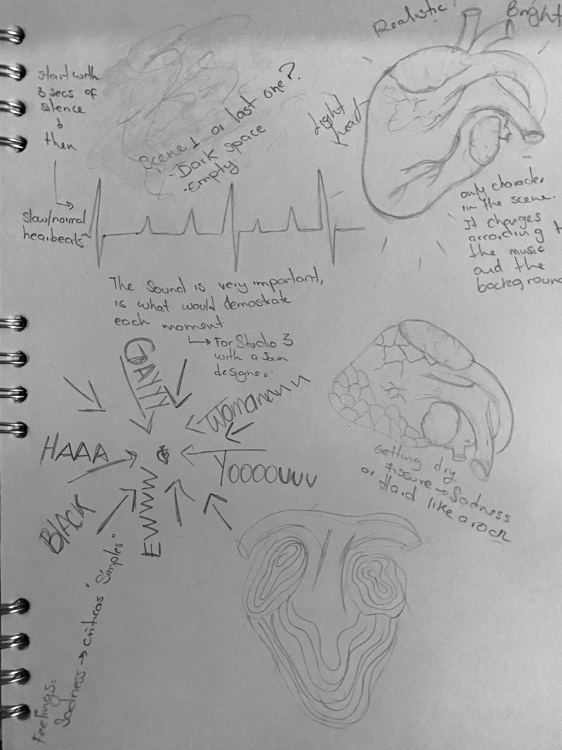 Realistic
Bright
start with
3 secs of
silence
↓
then
Scene 1 or last one?
- Dark space
- Empty
Light
slow/normal
hearbeats
only character
in the scene.
It changes
according t
the music
and the
background
The sound is very important,
is what would demostrate
each moment
↳ For Studio 3
with a
designe
GAYYY
Womanauu
HAAA
YOOOOUUU
BlACK
EWWWW
Getting dry
→ Sadness
or Hard like a rock
Feelings:
Sadness → criticas "Simples"